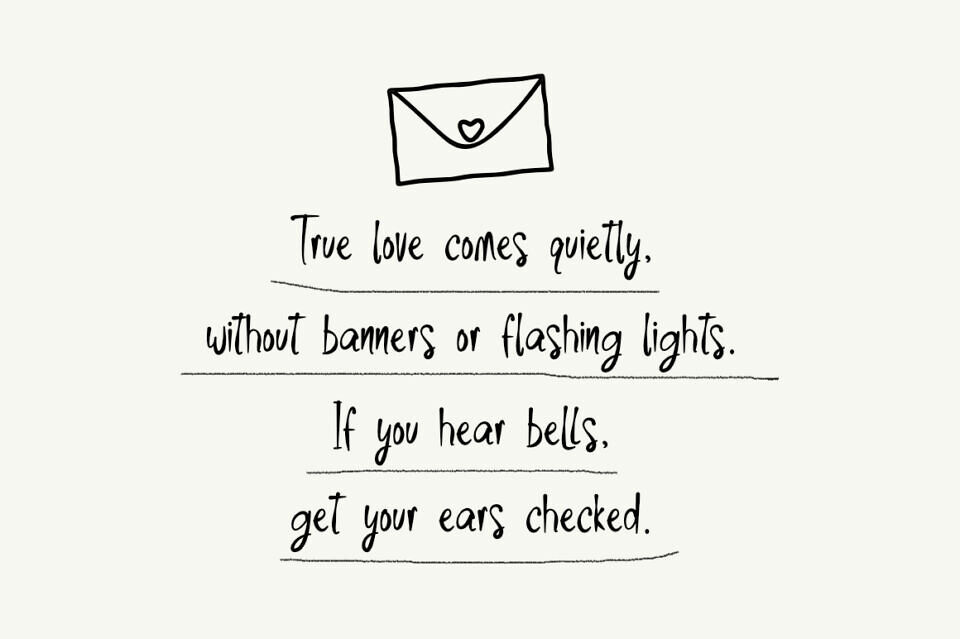 True love comes quietly,
without banners or flashing lights.
If you hear bells,
get your ears checked.